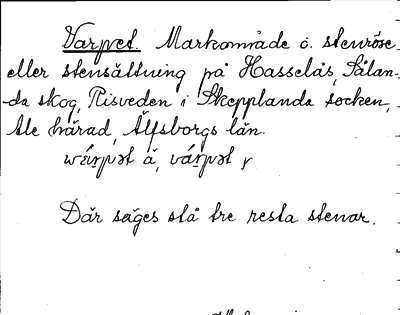 Varpet. Markområde o. stenröse
eller stensättning på Hasselås, Sålan-
da skog, Risveden i Skepplanda socken,
Ale härad, Älfsborgs län.
å, y
Där säges stå tre resta stenar.